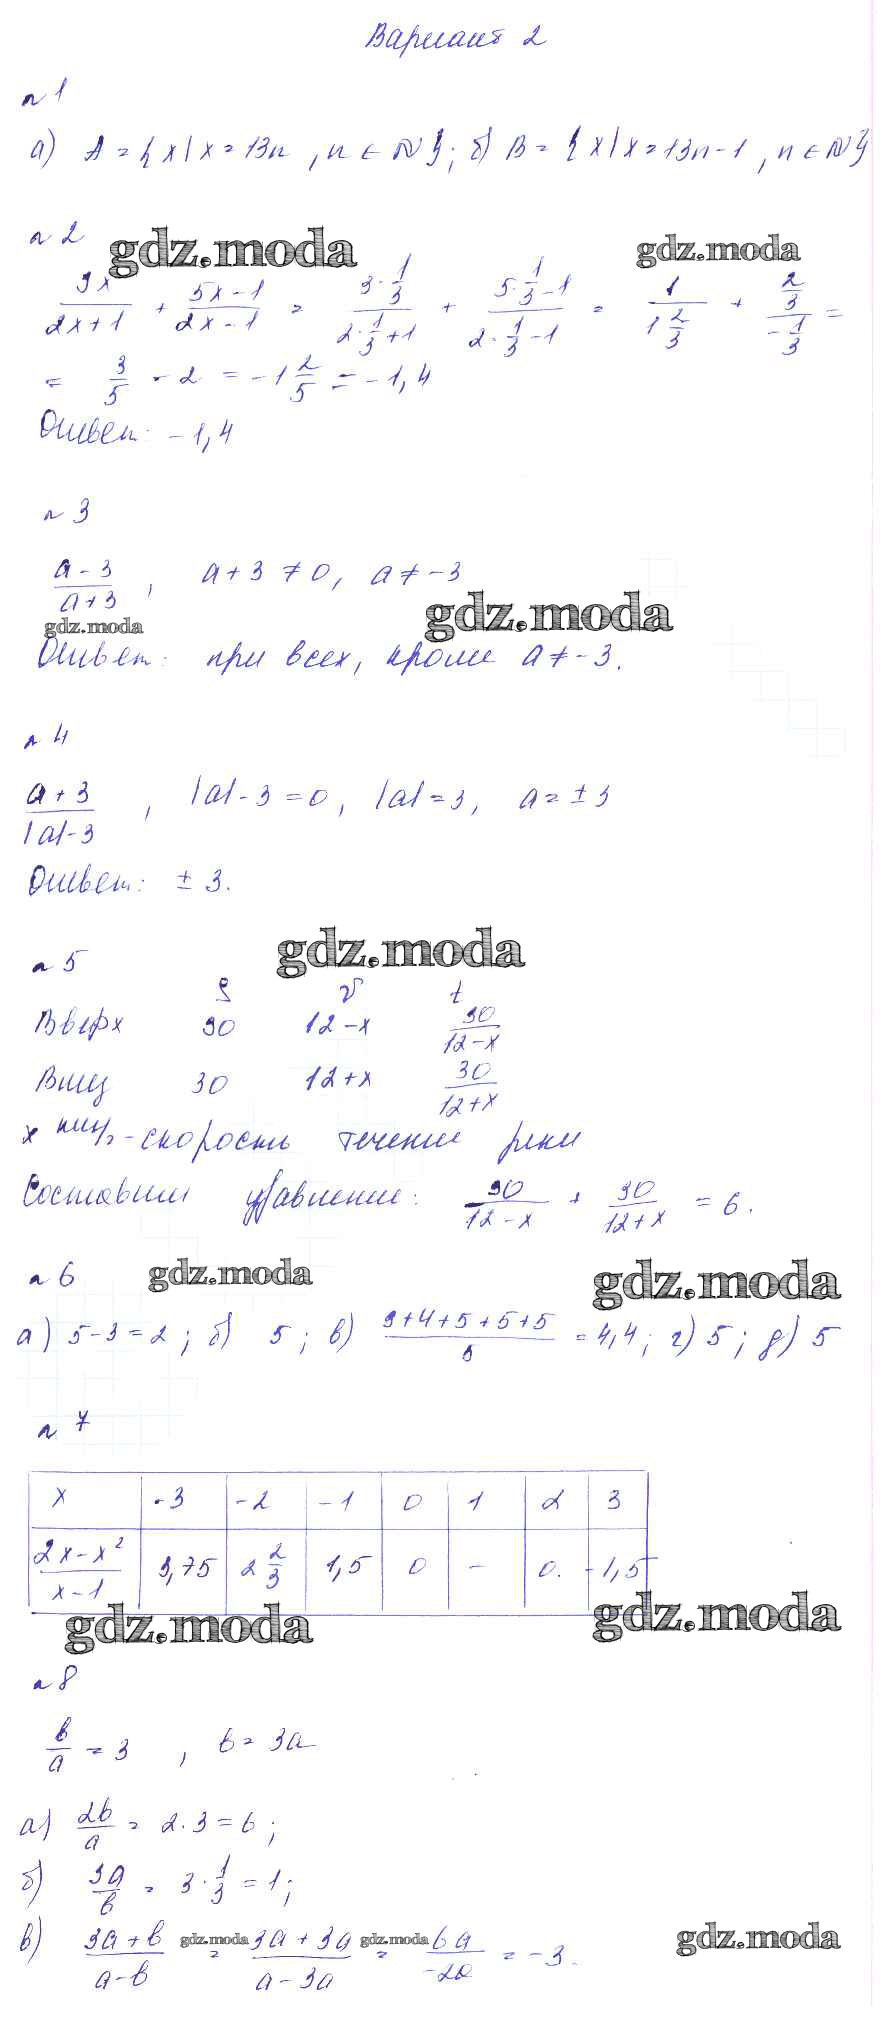 Вариант 2
n 1
а) A = {x|x = 13n, n ∈ N}; б) B = {x|x = 13n-1, n ∈ N}
n 2
gdz.moda gdz.moda
3x/(2x+1) + (5x-1)/(2x-1) = (3·1/3)/(2·1/3+1) + (5·1/3-1)/(2·1/3-1) = 1/(1 2/3) + (2/3)/(-1/3) =
= 3/5 - 2 = -1 2/5 = -1,4
Ответ: -1,4
n 3
(a-3)/(a+3), a+3 ≠ 0, a ≠ -3
gdz.moda gdz.moda
Ответ: при всех, кроме a ≠ -3.
n 4
(a+3)/(|a|-3), |a|-3 = 0, |a| = 3, a = ±3
Ответ: ±3.
gdz.moda
n 5
S v t
Вверх 30 12-x 30/(12-x)
Вниз 30 12+x 30/(12+x)
x км/ч - скорость течение реки
Составим уравнение: 30/(12-x) + 30/(12+x) = 6.
n 6 gdz.moda gdz.moda
а) 5-3 = 2; б) 5; в) (3+4+5+5+5)/5 = 4,4; г) 5; д) 5
n 7
x -3 -2 -1 0 1 2 3
(2x-x²)/(x-1) 3,75 2 2/3 1,5 0 - 0. -1,5
gdz.moda gdz.moda
n 8
b/a = 3, b = 3a
а) 2b/a = 2·3 = 6;
б) 3a/b = 3·1/3 = 1;
в) (3a+b)/(a-b) = (3a+3a)/(a-3a) = 6a/(-2a) = -3.
gdz.moda gdz.moda gdz.moda